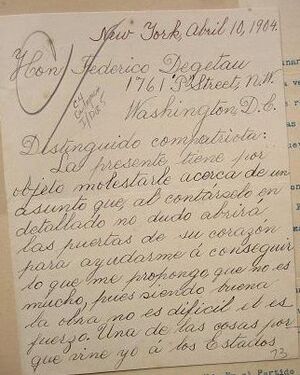 New York, Abril 10, 1904.
Hon. Federico Degetau
1761 "P" Street, N.W.
Washington, D.C.
Distinguido compatriota:
La presente tiene por
objeto molestarle acerca de un
asunto que, al contárselo en
detallado no dudo abrirá
las puertas de su corazón
para ayudarme á conseguir
lo que me propongo que no es
mucho, pues siendo buena
la obra no es difícil el es
fuerzo. Una de las cosas por
que vine yo á los Estados
73